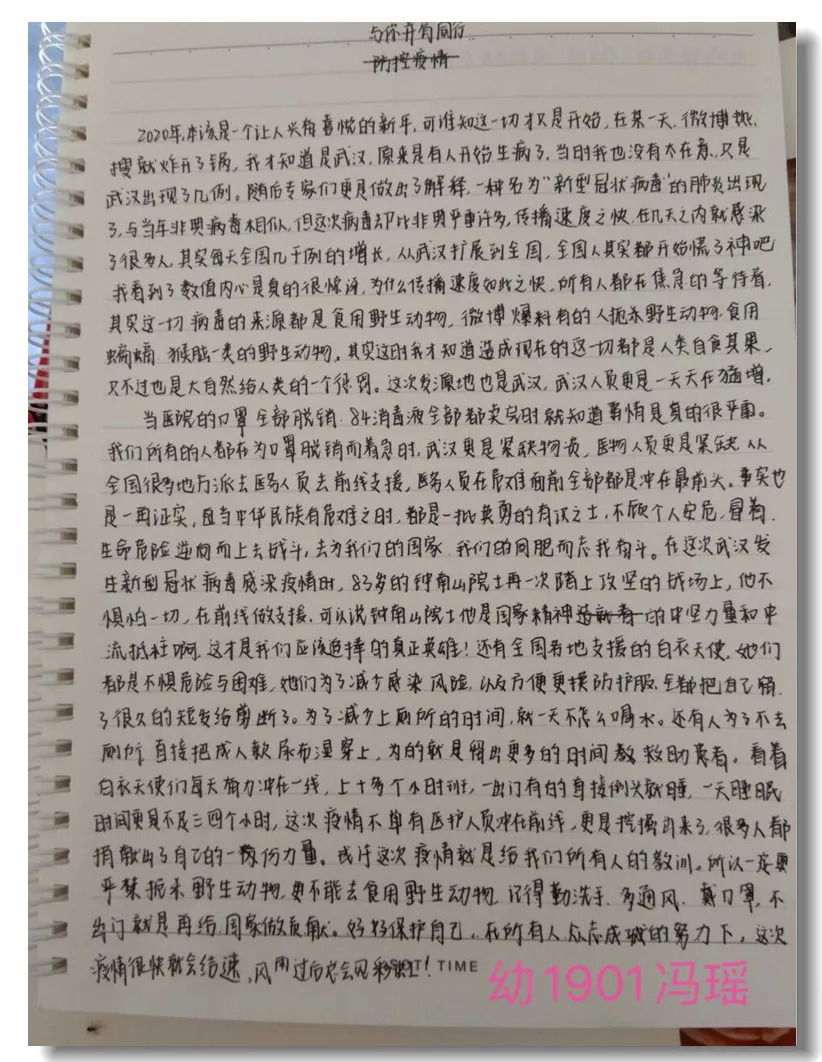 与你并肩同行
防控疫情
2020年,本该是一个让人兴奋喜悦的新年,可谁知这一切才只是开始,在某一天,微博热
搜就炸开了锅,我才知道是武汉,原来是有人开始生病了,当时我也没有太在意,只是
武汉出现了几例。随后专家们更是做出了解释,一种名为“新型冠状病毒”的肺炎出现
了,与当年非典病毒相似,但这次病毒却比非典严重许多,传播速度之快,在几天之内就感染
了很多人,其实每天全国几千例的增长,从武汉扩展到全国,全国人其实都开始慌了神吧
我看到了数值内心是真的很惊讶,为什么传播速度如此之快,所有人都在焦急的等待着,
其实这一切病毒的来源都是食用野生动物,微博爆料有的人扼杀野生动物.食用
蝙蝠 猴脑一类的野生动物,其实这时我才知道造成现在的这一切都是人类自食其果,
又不过也是大自然给人类的一个惩罚。这次发源地也是武汉,武汉人员更是一天天在猛增,
当医院的口罩全部脱销.84消毒液全部都卖完时就知道事情是真的很严重。
我们所有的人都在为口罩脱销而着急时,武汉更是紧缺物资,医物人员更是紧缺 从
全国很多地方派去医务人员去前线支援,医务人员在危难面前全部都是冲在最前头。事实也
是一再证实,每当中华民族有危难之时,都是一批英勇的有识之士,不顾个人安危,冒着
生命危险逆向而上去战斗,去为我们的国家 我们的同胞而忘我奋斗。在这次武汉发
生新型冠状病毒感染疫情时,83岁的钟南山院士再一次踏上攻坚的战场上,他不
惧怕一切,在前线做支援,可以说钟南山院士他是国家精神 的中坚力量和中
流抵柱啊,这才是我们应该追捧的真正英雄!还有全国各地支援的白衣天使,她们
都是不惧危险与困难,她们为了减少感染风险,以及方便更换防护服,全都把自己留
了很久的短发给剪断了。为了减少上厕所的时间,就一天不怎么喝水。还有人为了不去
厕所 直接把成人款尿布湿穿上,为的就是留出更多的时间 救助患者。看着
白衣天使们每天奋力冲在一线,上十多个小时班,一出门有的直接倒头就睡,一天睡眠
时间更是不及三四个小时,这次疫情不单有医护人员冲在前线,更是挖掘出来了,很多人都
捐献出了自己的一份力量。或许这次疫情就是给我们所有人的教训。所以一定要
严禁扼杀野生动物,更不能去食用野生动物 记得勤洗手、多通风、戴口罩,不
出门就是再给国家做贡献。好好保护自己,在所有人众志成城的努力下,这次
疫情很快就会结速,风雨过后总会见彩虹! TIME
幼1901冯瑶